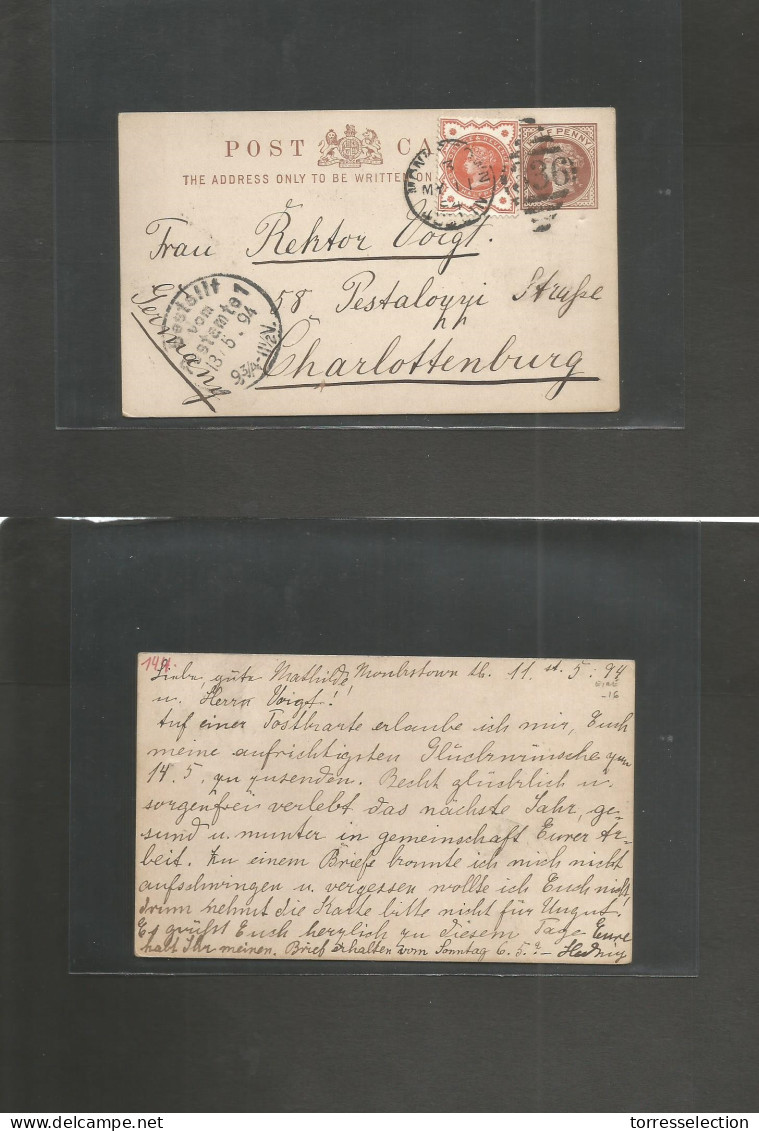 POST CA
THE ADDRESS ONLY TO BE WRITTEN ON
PENNY
36
MONKS
MY
Frau Rektor Voigt.
58 Pestalozzi Straße
Charlottenburg
Germany
Bestellt
vom
Postamte 1
13/5 94
9¾-11½V.
149.
Liebe, gute Mathilde! Monkstown tb. 11. st. 5. 94
EIRE
-16
u. Herrn Voigt!
Auf einer Postkarte erlaube ich mir, Euch
meine aufrichtigsten Glückwünsche zum
14.5. zu zusenden. Recht glücklich u.
sorgenfrei verlebt das nächste Jahr, ge-
sund u. munter in gemeinschaft Eurer Ar-
beit. Zu einem Briefe konnte ich mich nicht
aufschwingen u. vergessen wollte ich Euch nicht,
drum nehmt die Karte bitte nicht für Ungut.
Es grüßt Euch herzlich zu diesem Tage Eure
habt Ihr meinen Brief erhalten vom Sonntag 6.5.? – Hedwig
torresselection